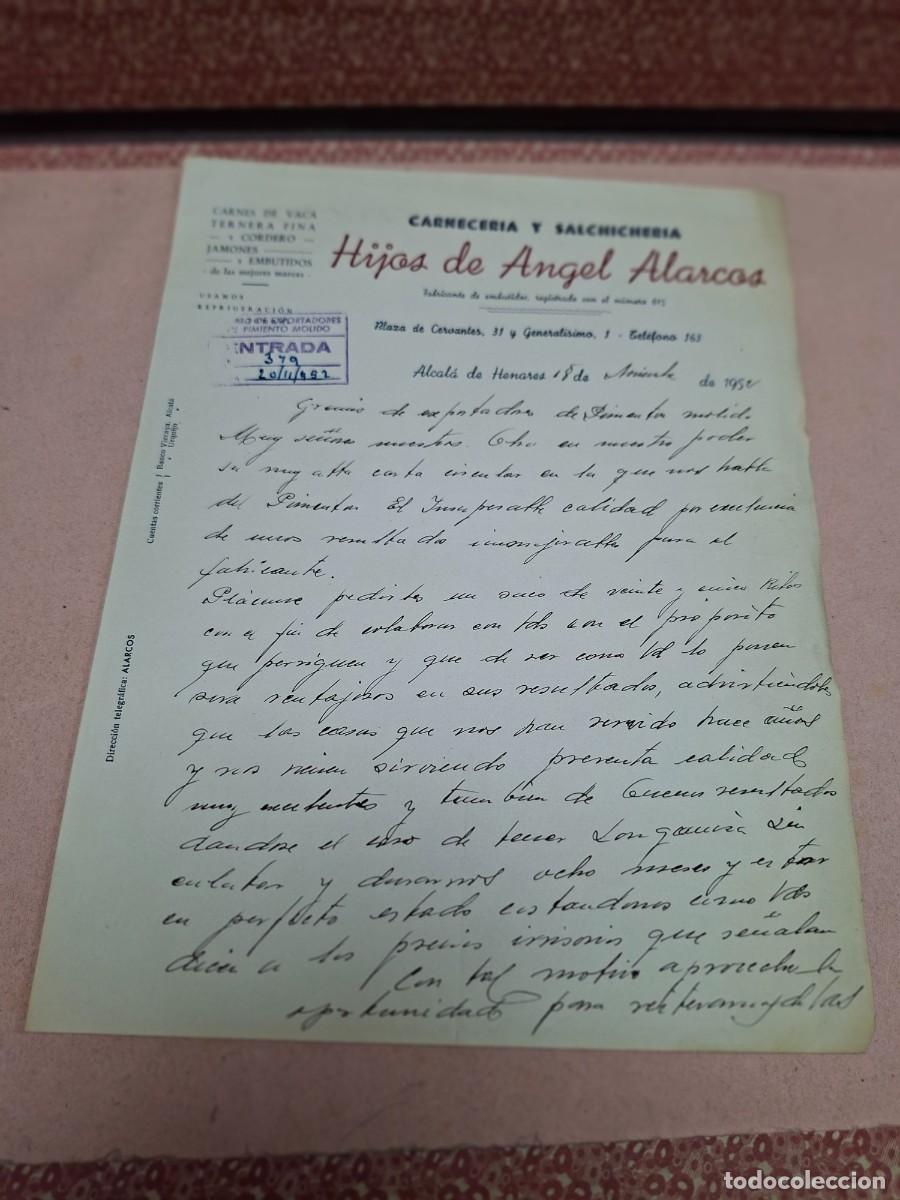 CARNES DE VACA
TERNERA FINA
- Y CORDERO -
JAMONES
Y EMBUTIDOS
- de las mejores marcas -
USAMOS
REFRIGERACIÓN
CARNECERIA Y SALCHICHERIA
Hijos de Angel Alarcos
Fabricante de embutidos, registrado con el número 615
Plaza de Cervantes, 31 y Generalísimo, 1 - Teléfono 163
DE EXPORTADORES
PIMIENTO MOLIDO
ENTRADA
379
20/11/952
Alcalá de Henares 18 de Noviembre de 1952
Gremio de exportadores de Pimenton molido
Muy señores nuestros. Obra en nuestro poder
su muy atta carta circular en la que nos habla
del Pimenton El Insuperable calidad por excelencia
de unos resultados para el
fabricante.
pedirles un saco de veinte y cinco Kilos
con el fin de colaborar con Vds con el proposito
que persiguen y que de ser como Vd lo ponen
sera ventajoso en sus resultados, advirtiendoles
que las casas que nos han servido hace años
y nos vienen sirviendo presenta calidad
muy excelentes y tambien de buenos resultados
dandose el caso de tener Longaniza sin
enlatar y durarnos ocho meses y estar
en perfecto estado costandonos como Vds
dicen a los precios irrisorios que señalan
Con tal motivo aprovecho la
oportunidad para
Cuentas corrientes
Banco Vizcaya. Alcalá
" Urquijo "
Dirección telegráfica: ALARCOS
todocoleccion